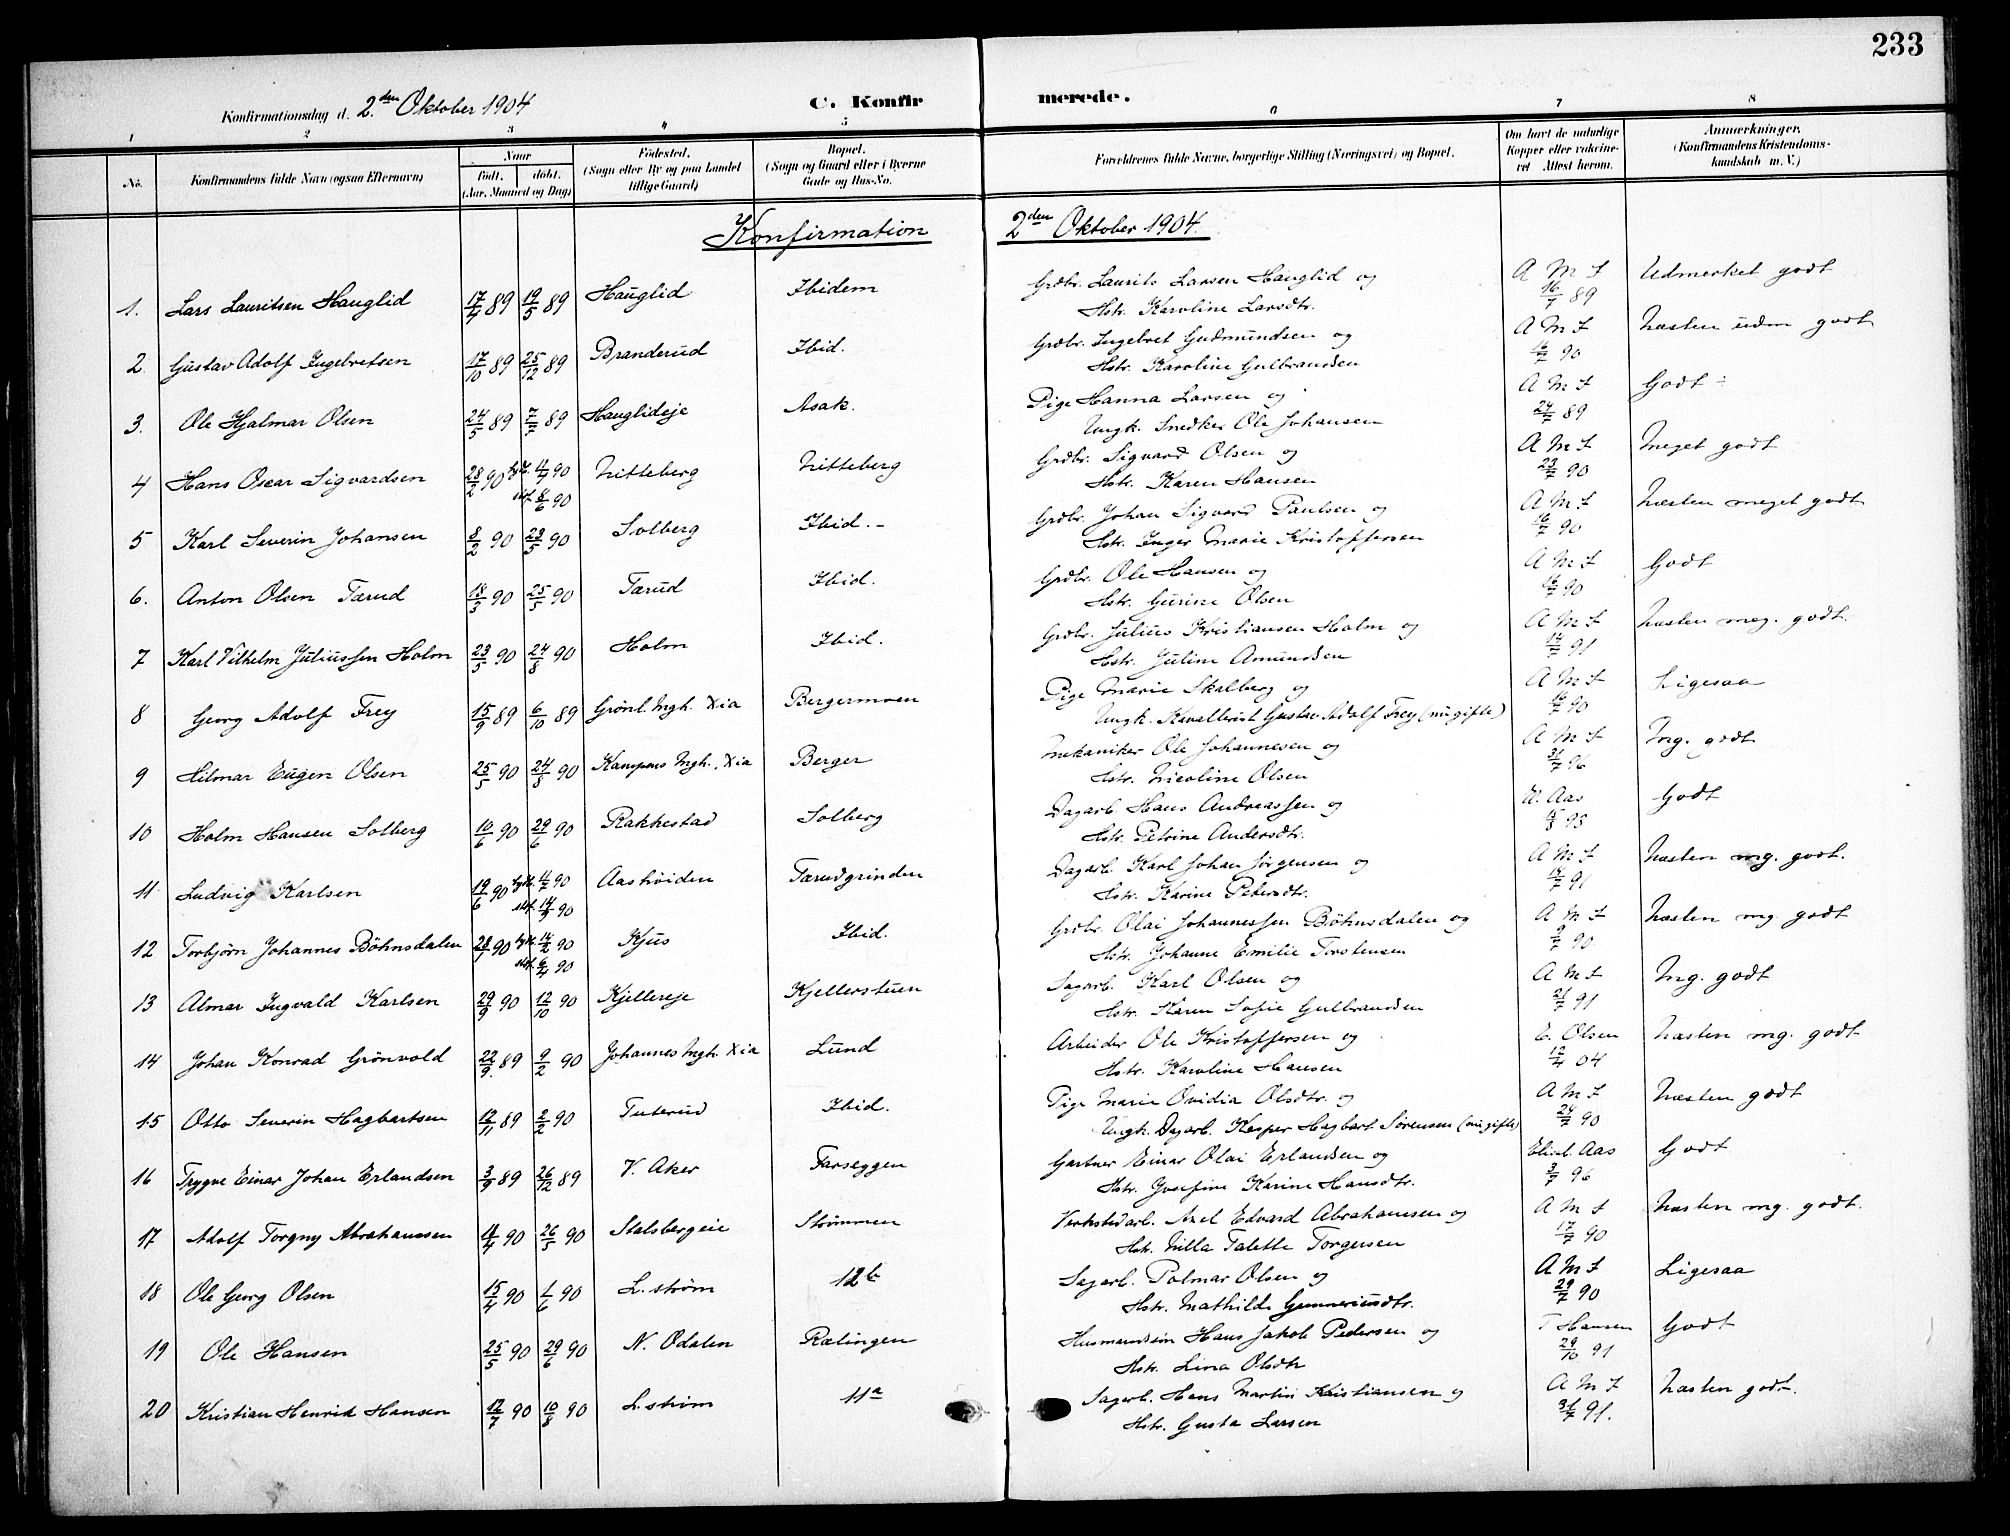 233
Konfirmationsdag d. 2.den Oktober 1904 C. Konfirmerede.
1 2 3 4 5 6 7 8
No. Konfirmandens fulde Navn (ogsaa Efternavn) Naar født. døbt. (Aar, Maaned og Dag) Fødested. (Sogn eller By og paa Landet tillige Gaard) Bopæl. (Sogn og Gaard eller i Byerne Gade og Hus-No. Forældrenes fulde Navne, borgerlige Stilling (Næringsvei) og Bopæl. Om havt de naturlige Kopper eller vakcineret Attest herom. Anmærkninger. (Konfirmandens Kristendomskundskab m. V.)
Konfirmation 2den Oktober 1904.
1. Lars Lauritsen Hauglid 17/4 89 19/5 89 Hauglid Ibidem Grdbr. Laurits Larsen Hauglid og A M F Udmerket godt
Hstr. Karoline Larsdtr. 16/7 89
2. Gustav Adolf Ingebretsen 17/10 89 25/12 89 Branderud Ibid. Grdbr. Ingebret Gudmundsen og A M F Næsten udm godt
Hstr. Karoline Gulbrandsen 16/7 90
3. Ole Hjalmar Olsen 24/5 89 7/7 89 Hauglideje Asak. Pige Hanna Larsen og A M F Godt ÷
Ungk. Snedker Ole Johansen 24/7 89
4 Hans Oscar Sigvardsen 28/2 90 4/4 90 Nitteberg Nitteberg Grdbr. Sigvard Olsen og A M F Meget godt
stf. 8/6 90 Hstr. Karen Hansen 23/7 90
5 Karl Severin Johansen 8/2 90 23/5 90 Solberg Ibid.- Grdbr. Johan Sigvard Paulsen og A M F Næsten meget godt
Hstr. Inger Marie Kristoffersen 16/7 90
6. Anton Olsen Tærud 18/3 90 25/5 90 Tærud Ibid. Grdbr. Ole Hansen og A M F Godt
Hstr. Gurine Olsen 16/7 90
7 Karl Vilhelm Juliussen Holm 23/5 90 24/8 90 Holm Ibid. Grdbr. Julius Kristiansen Holm og A M F Næsten meg. godt.
Hstr. Juline Amundsen 14/7 91
8 Georg Adolf Frey 15/9 89 6/10 89 Grønl. Mgh. Xia Bergermoen Pige Marie Skalberg og A M F Ligesaa
Ungk. Kavallerist Gustav Adolf Frey (nu gifte) 16/7 90
9 Hilmar Eugen Olsen 25/5 90 24/8 90 Kampens Mgh. Xia Berger Mekaniker Ole Johannesen og A M F Mg. godt
Hstr. Nicoline Olsen 31/7 96
10 Holm Hansen Solberg 10/6 90 29/6 90 Rakkestad Solberg Dagarb. Hans Andreassen og Aas Godt
Hstr. Petrine Andersdtr. 98
11 Ludvig Karlsen 19/6 90 4/7 90 Aashøiden Tærudgrinden Dagarb. Karl Johan Jørgensen og A M F Næsten mg. godt.
stf. 14/9 90 Hstr. Karine Petersdtr. 14/7 91
12 Torbjørn Johannes Bøhnsdalen 90 14/2 90 Kjus Ibid. Grdbr. Olai Johannessen Bøhnsdalen og A M F Næsten mg. godt
stf. 6/4 90 Hstr. Johanne Emilie Torstensen 9/7 90
13 Almar Ingvald Karlsen 29/9 90 12/10 90 Kjellereje Kjellerstuen Sagarb. Karl Olsen og A M F Mg. godt
Hstr. Karen Sofie Gulbrandsen 21/7 91
14 Johan Konrad Grønvold 22/9 89 9/2 90 Johannes Mgh. Xia Lund Arbeider Ole Kristoffersen og E. Olsen Næsten mg. godt
Hstr. Karoline Hansen 12/4 04
15 Otto Severin Hagbartsen 12/11 89 2/2 90 Tuterud Ibid. Pige Marie Ovidia Olsdtr. og A M F Næsten godt
Ungk. Dagarb. Kasper Hagbart Sørensen (nu gifte) 24/7 90
16 Trygve Einar Johan Erlandsen 3/9 89 26/12 89 V. Aker Farseggen Gartner Einar Olai Erlandsen og Elisel. Aas Godt
Hstr. Josefine Karine Hansdtr. 3/7 96
17 Adolf Torgny Abrahamsen 11/4 90 26/5 90 Stalsbergeie Strømmen Verkstedarb. Axel Edvard Abrahamsen og A M F Næsten mg. godt.
Hstr. Milla Talette Torgersen 17/7 90
18 Ole Georg Olsen 15/4 90 1/6 90 L. strøm 12b Sagarb. Polmar Olsen og A M F Ligesaa
Hstr. Mathilde Gunneriusdtr. 29/7 90
19 Ole Hansen 25/5 90 29/6 90 N. Odalen Rælingen Husmandssøn Hans Jakob Pedersen og T Hansen Godt
Hstr. Lina Olsdtr 29/10 91
20 Kristian Henrik Hansen 12/7 90 10/8 90 L. strøm 11a Sagarb. Hans Martin Kristiansen og A M F Næsten godt.
Hstr. Gusta Larsen 31/7 91.